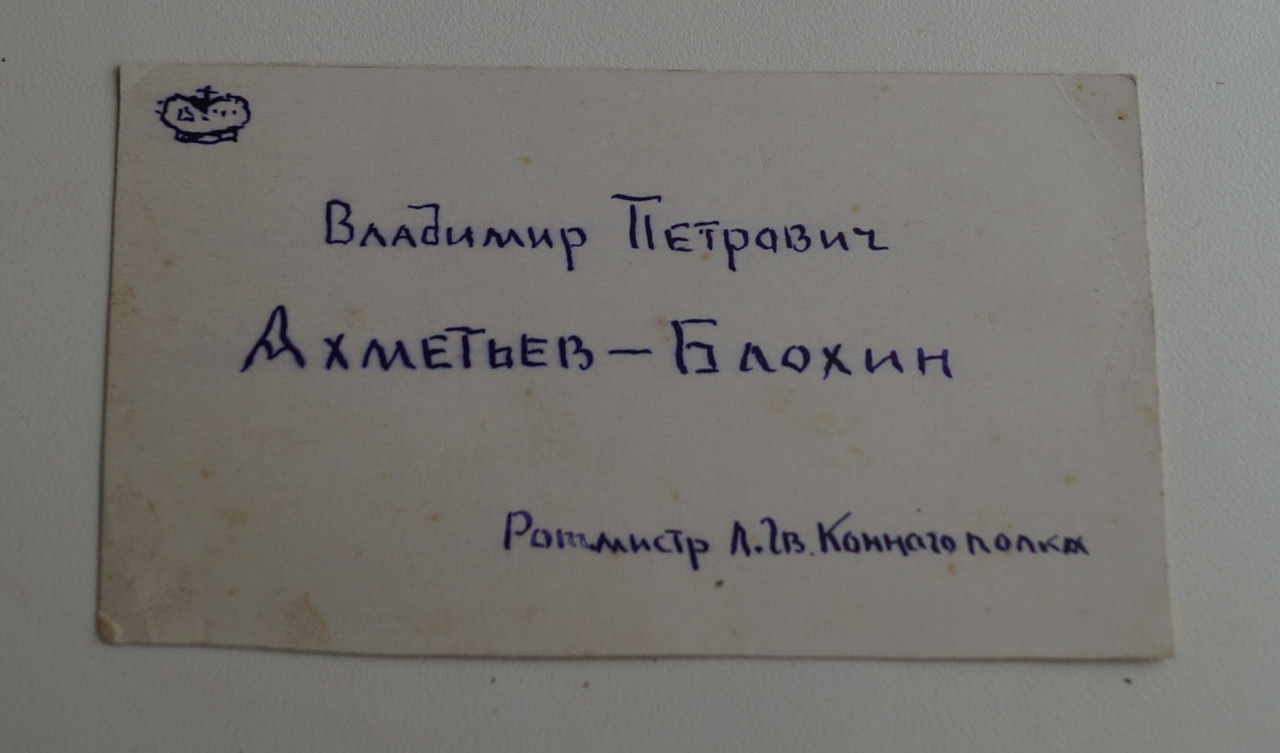 Владимир Петрович
Ахметьев - Блохин
Ротмистр Л.Гв. Коннаго полка